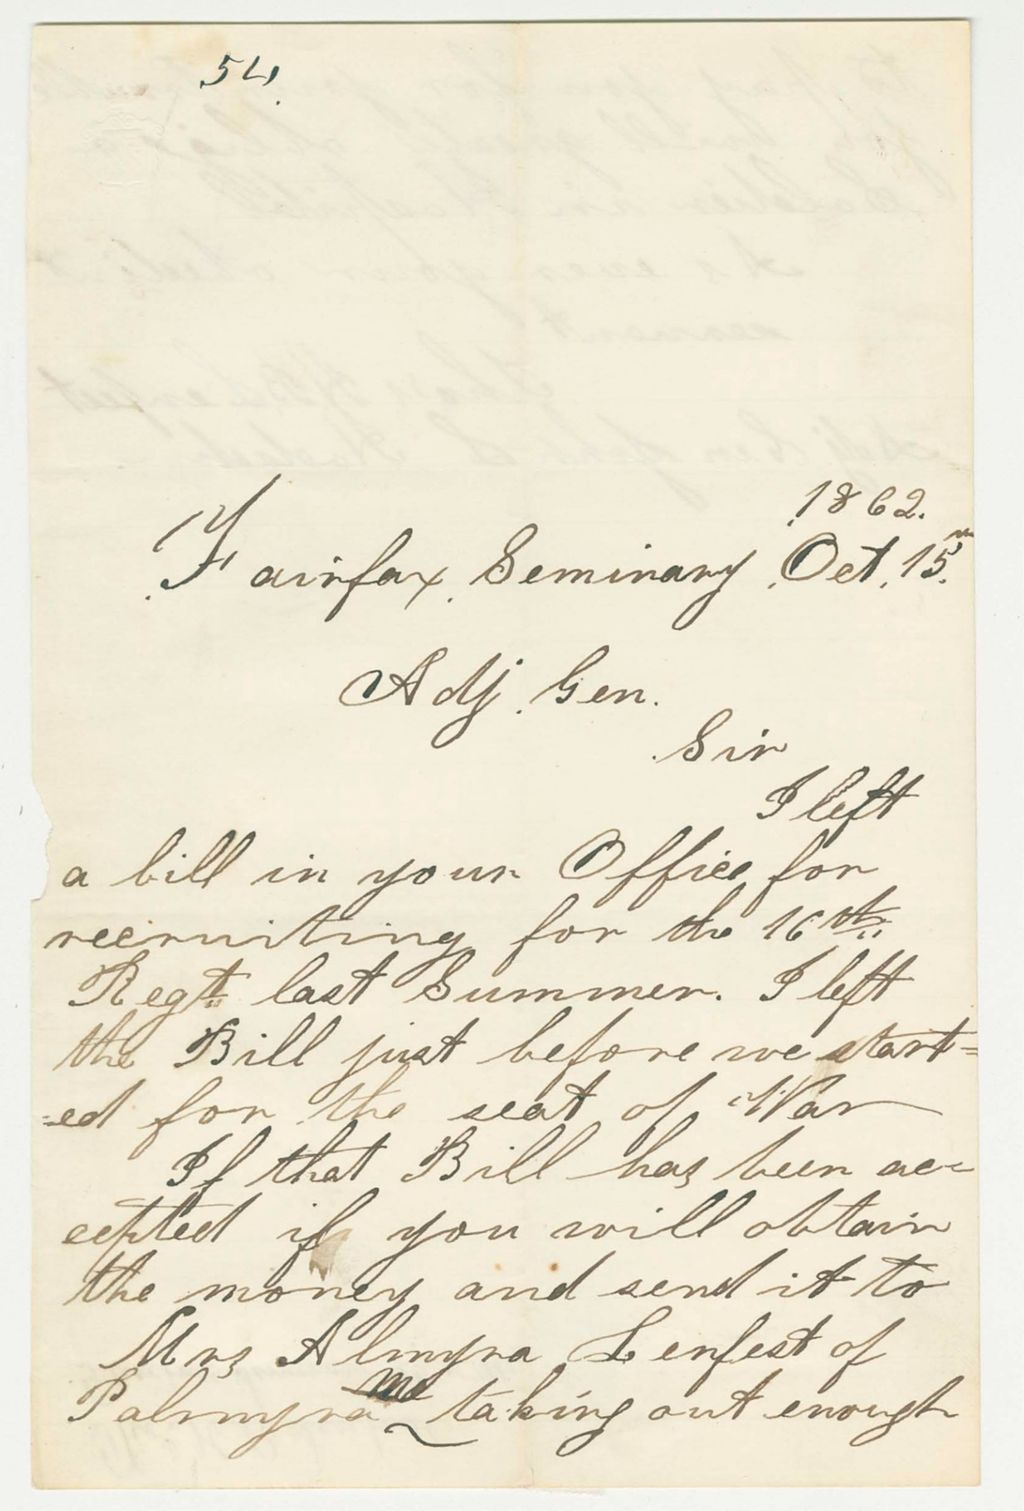 54.
1862.
Fairfax Seminary Oct. 15th
Adj. Gen.
Sir
I left
a bill in your Office for
recruiting for the 16th
Regt. last Summer. I left
the Bill just before we start=
=ed for the seat of War
If that Bill has been ac=
cepted if you will obtain
the money and send it to
Mrs Almyra Lenfest of
Palmyra Me taking out enough